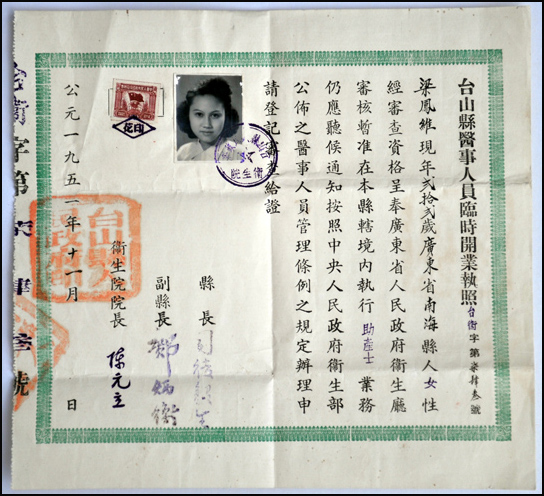 台山縣醫事人員臨時開業執照 台衛字第柒肆叁號
梁鳳維現年貳拾貳歲廣東省南海縣人女性
經審查資格呈奉廣東省人民政府衛生廳
審核暫准在本縣轄境内執行助產士業務
仍應聽候通知按照中央人民政府衛生部
公佈之醫事人員管理條例之規定辦理申
請登記審查給證
縣長
副縣長 鄭炳衡
衛生院院長 陳元立
公元一九五一年十一月 日
台衛字第柒肆叁號
印花
衛生院